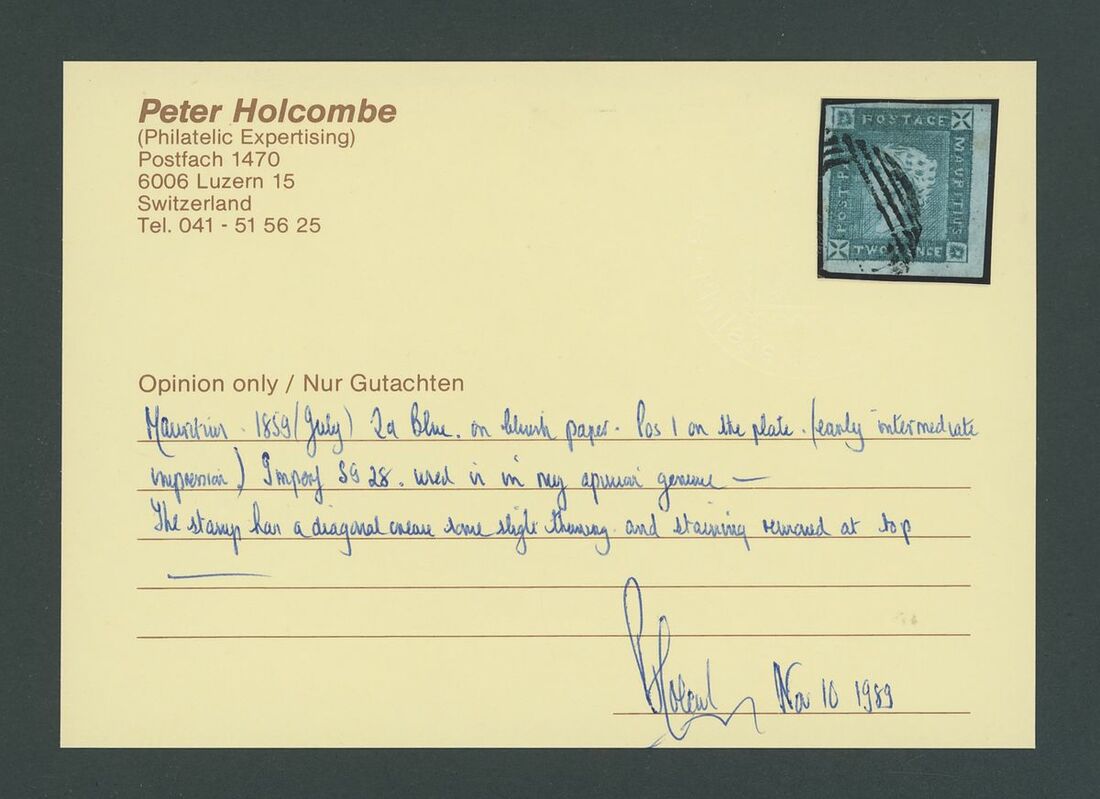 Peter Holcombe
(Philatelic Expertising)
Postfach 1470
6006 Luzern 15
Switzerland
Tel. 041 - 51 56 25
POSTAGE
MAURITIUS
POST PA
TWO PENCE
Opinion only / Nur Gutachten
Mauritius . 1859 (July) 2d Blue . on bluish paper . Pos 1 on the plate . (early intermediate
impression) Imperf SG 28 . used is in my opinion genuine —
The stamp has a diagonal crease some slight thinning and staining removed at top
Nov 10 1989